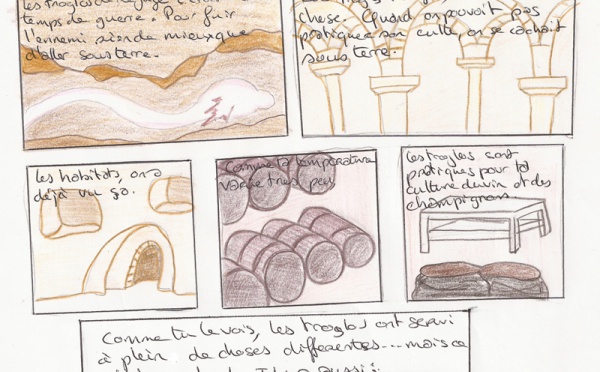 temps de guerre. Pour fuir
l'ennemi rien de mieux que
d'aller sous terre.
chose. Quand on pouvait pas
pratiquer son culte, on se cachait
sous terre.
Les habitats, on a
déjà vu ça.
Comme la température
varie très peu
Les troglos sont
pratiques pour la
culture du vin et des
champignons
Comme tu le vois, les troglos ont servi
à plein de choses différentes... mais ce